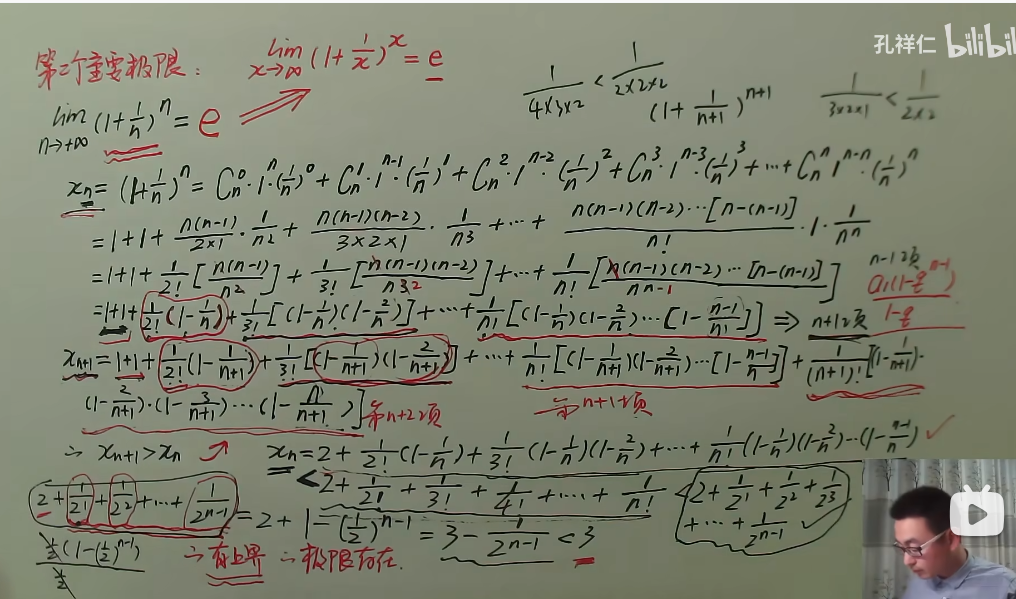 孔祥仁 bilibili
第二个重要极限: lim x→∞ (1+1/x)^x = e
1/(4×3×2) < 1/(2×2×2)
(1+1/(n+1))^(n+1)
1/(3×2×1) < 1/(2×2)
lim n→+∞ (1+1/n)^n = e
x_n = (1+1/n)^n = C_n^0·1^n·(1/n)^0 + C_n^1·1^(n-1)·(1/n)^1 + C_n^2·1^(n-2)·(1/n)^2 + C_n^3·1^(n-3)·(1/n)^3 + ··· + C_n^n·1^(n-n)·(1/n)^n
= 1+1+ n(n-1)/(2×1)·1/n^2 + n(n-1)(n-2)/(3×2×1)·1/n^3 + ··· + n(n-1)(n-2)···[n-(n-1)]/n!·1·1/n^n
= 1+1+ 1/2![n(n-1)/n^2] + 1/3![n(n-1)(n-2)/n^3 2] + ··· + 1/n![n(n-1)(n-2)···[n-(n-1)]/n^n-1]
n-1项
a_1(1-q^(n-1))/(1-q)
= 1+1+ 1/2!(1-1/n) + 1/3![(1-1/n)(1-2/n)] + ··· + 1/n![(1-1/n)(1-2/n)···[1-(n-1)/n!]] ⇒ n+1项
x_(n+1) = 1+1+ 1/2!(1-1/(n+1)) + 1/3![(1-1/(n+1))(1-2/(n+1))] + ··· + 1/n![(1-1/(n+1))(1-2/(n+1))···[1-(n-1)/(n+1)]] + 1/(n+1)![(1-1/(n+1))·
(1-2/(n+1))·(1-3/(n+1))···(1-n/(n+1))] 第n+2项
第n+1项
∴ x_(n+1) > x_n
x_n = 2+ 1/2!(1-1/n) + 1/3!(1-1/n)(1-2/n) + ··· + 1/n!(1-1/n)(1-2/n)···(1-(n-1)/n) ✓
< 2+ 1/2! + 1/3! + 1/4! + ··· + 1/n! < 2+ 1/2^1 + 1/2^2 + 1/2^3
+ ··· + 1/2^(n-1) ✓
2+ 1/2^1 + 1/2^2 + ··· + 1/2^(n-1) = 2+1-(1/2)^(n-1) = 3- 1/2^(n-1) < 3
1/2(1-(1/2)^(n-1))/(1/2)
∴ 有上界 ∴ 极限存在.